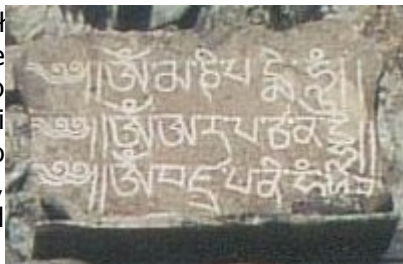 ༄༅།།ཨོཾ་མ་ཎི་པ་དྨེ་ཧཱུྃ།།
༄༅།།ཨོཾ་ཨ་ར་པ་ཙ་ན་
༄༅།།ཨོཾ་བཛྲ་པ་ཎི་ཧཱུྃ